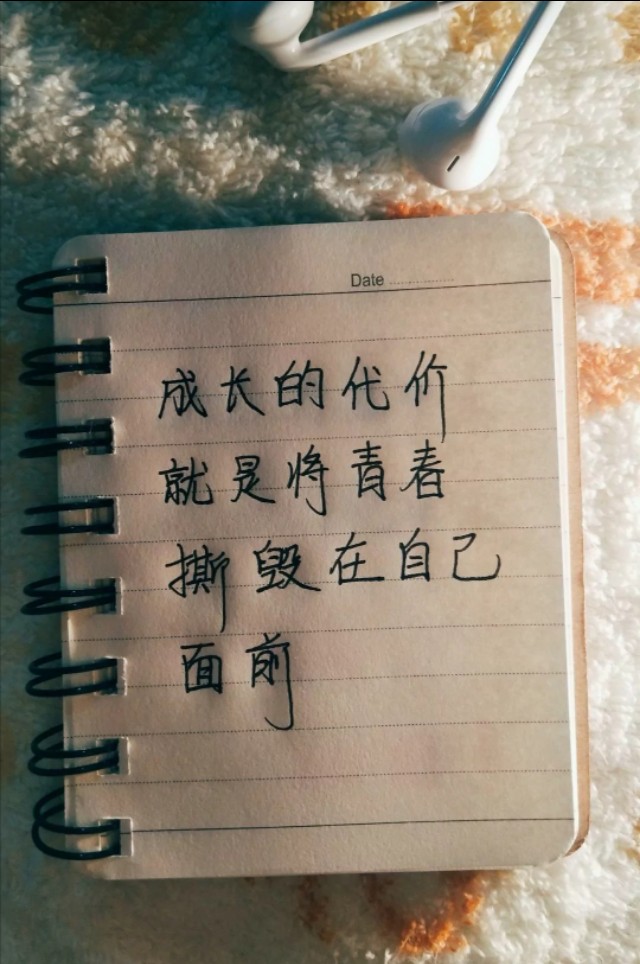 Date
成长的代价
就是将青春
撕毁在自己
面前